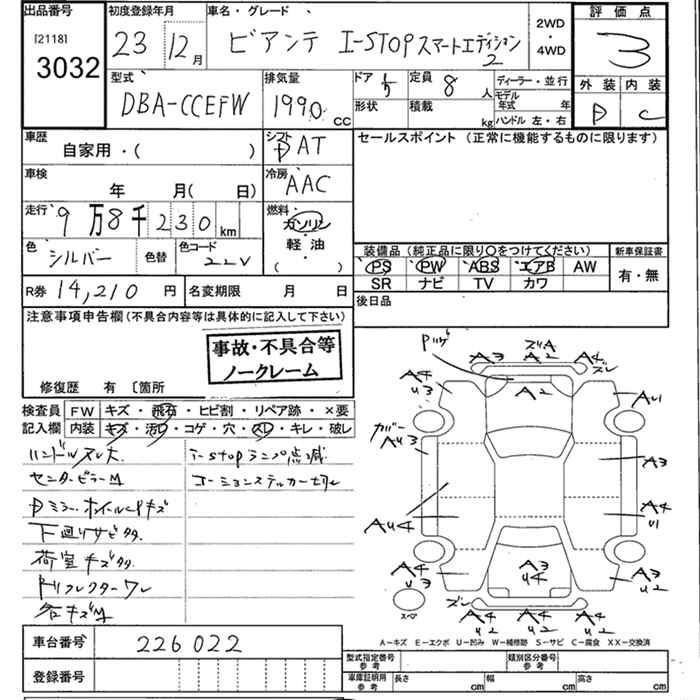 出品番号 初度登録年月 車名・グレード 評価点
[2118] 3032 23 12月 ビアンテ I-STOPスマートエディション2 2WD・4WD 3
型式 排気量 ドア 定員 8人 ディーラー・並行 外装 内装
DBA-CCEFW 1990cc 5 形状 積載 kg モデル年式 年 ハンドル 左・右 D C
車歴 自家用・( ) シフト AT セールスポイント(正常に機能するものに限ります)
車検 年 月( 日) 冷房 AAC
走行 9万8千230km 燃料 ガソリン・軽油・( )
色 シルバー 色替 色コード 22V 装備品(純正品に限り○をつけてください) 新車保証書
PS PW ABS エアB AW 有・無
SR ナビ TV カワ
R券 14,210円 名変期限 月 日 後日品
注意事項申告欄(不具合内容等は具体的に記入して下さい)
事故・不具合等
ノークレーム
修復歴 有〔箇所
検査員 FW キズ・飛石・ヒビ割・リペア跡・×要
記入欄 内装 キズ・汚レ・コゲ・穴・スレ・キレ・破レ
ハンドルスレ大 i-stopランプ点滅
センターピラーM コーションステッカー切レ
Dミラー・ホイールCPキズ
下廻りサビタタ
荷室キズタタ
リフレクターワレ
各キズM
ズレA
A3 A2 A4 ズレ
A4 U3 A2 AU1
カバー AU3 A3
AU4 A4 U1
A4 U3 A3 U4 A4 U3
ズレ A4 U2 A4 U2 A4 U2
スペア
A−キズ E−エクボ U−凹み W−補修跡 S−サビ C−腐食 XX−交換済
車台番号 226022 型式指定番号 参考 類別区分番号 参考
登録番号 車庫証明用 参考 長さ cm 幅 cm 高さ cm